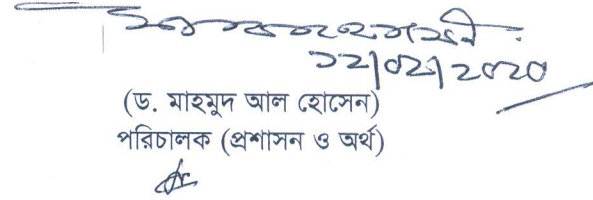 ১২/০২/২০২০
(ড. মাহমুদ আল হোসেন)
পরিচালক (প্রশাসন ও অর্থ)